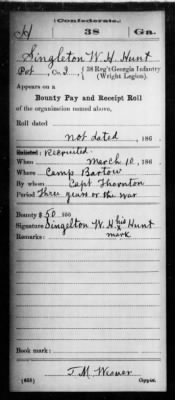 (Confederate.)
H 38 Ga.
Singleton W. H. Hunt
Pvt, Co. I, 38 Reg't Georgia Infantry
(Wright Legion).
Appears on a
Bounty Pay and Receipt Roll
of the organization named above,
Roll dated
not dated, 186
Enlisted: Recruited.
When March 10, 186
Where Camp Bartow
By whom Capt Thornton
Period Three years or the war
Bounty $50 100
Signature Singelton W. H. his x Hunt
Remarks: mark
Book mark:
(655) Copyer.